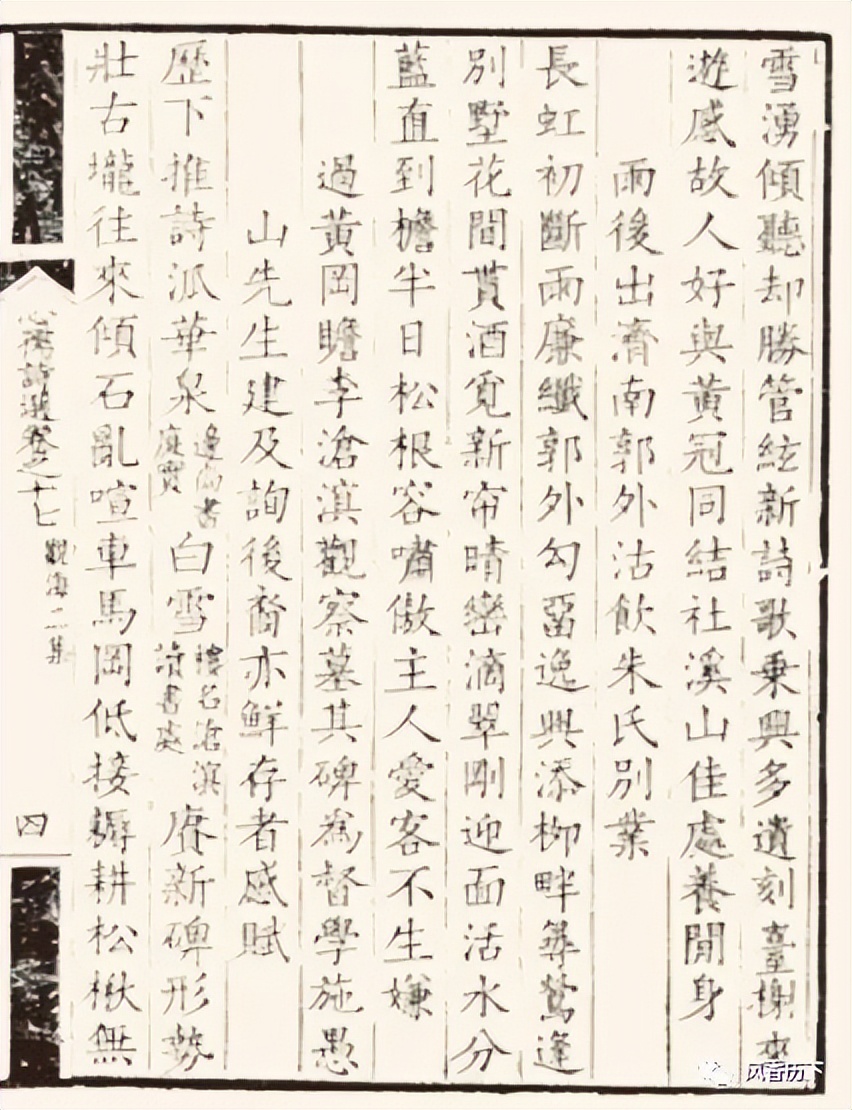 雪湧傾聽却勝管絃新詩歌乗興多遺刻臺榭來
遊感故人好與黃冠同結社溪山佳處養閒身
雨後出濟南郭外沽飲朱氏別業
長虹初斷雨廉纖郭外勾畱逸興添柳畔尋鶯逢
別墅花間貰酒覓新帘晴巒滴翠剛迎面活水分
藍直到檐半日松根容嘯傲主人愛客不生嫌
過黃岡瞻李滄溟觀察墓其碑為督學施愚
山先生建及詢後裔亦鮮存者感賦
歷下推詩派華泉邊尚書廷實白雪樓名滄溟讀書處賡新碑形勢
壯古壠往來傾石亂喧車馬岡低接耨耕松楸無
詩選卷之十七
觀海二集
四
风香历下